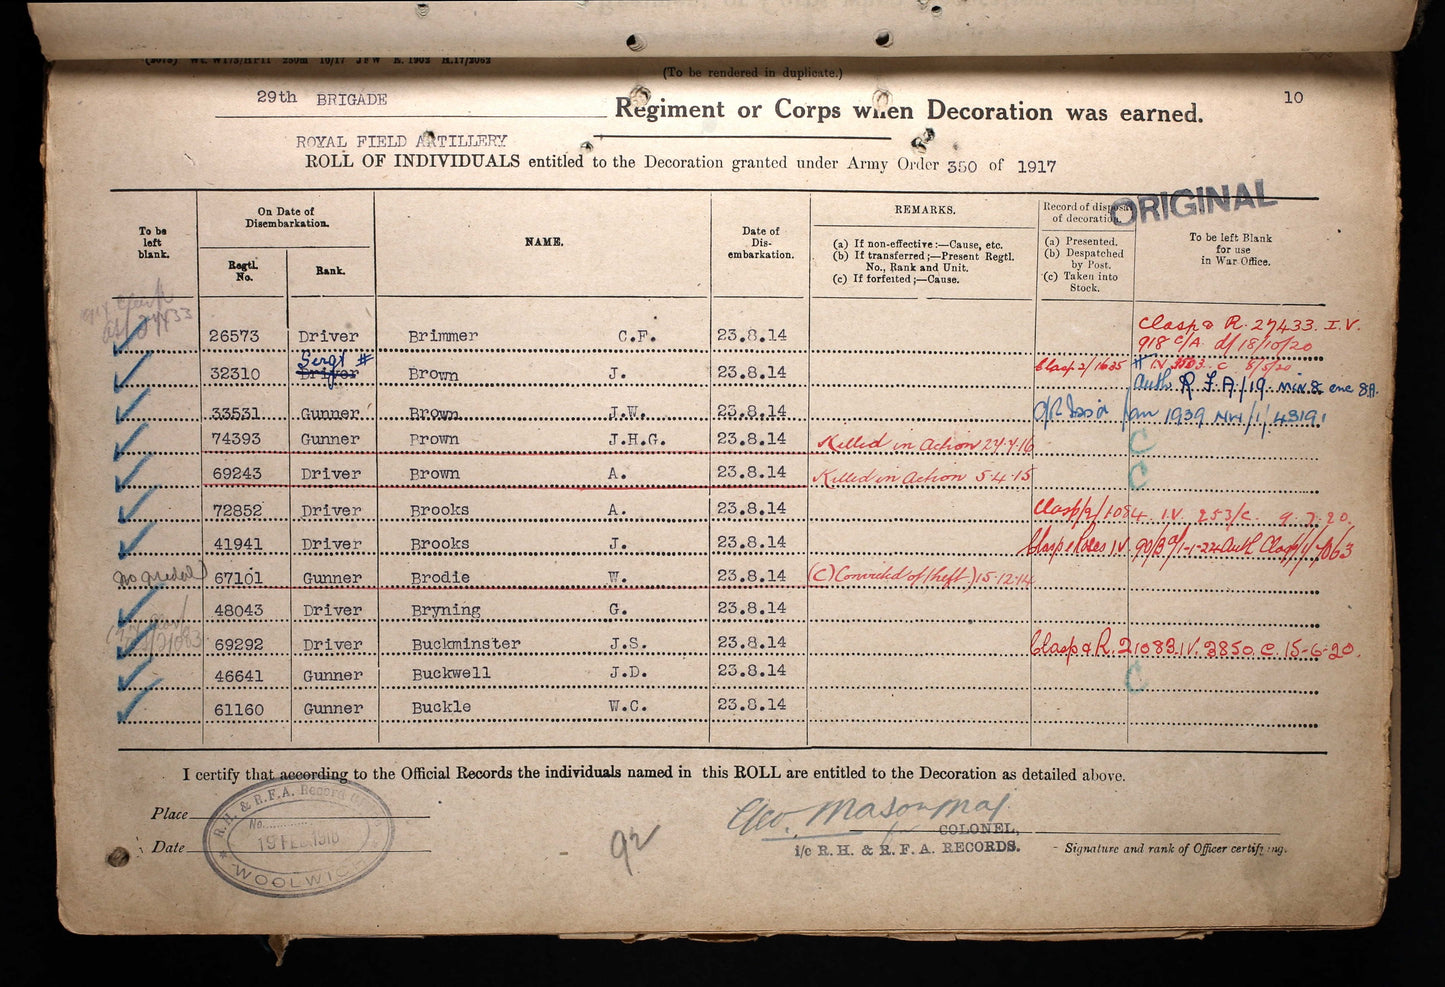 (To be rendered in duplicate.)
10
29th BRIGADE
Regiment or Corps when Decoration was earned.
ROYAL FIELD ARTILLERY
ROLL OF INDIVIDUALS entitled to the Decoration granted under Army Order 350 of 1917
ORIGINAL
To be left blank.
On Date of Disembarkation.
Regtl. No.
Rank.
NAME.
Date of Dis-embarkation.
REMARKS.
(a) If non-effective:—Cause, etc.
(b) If transferred;—Present Regtl. No., Rank and Unit.
(c) If forfeited;—Cause.
Record of disposal of decoration.
(a) Presented.
(b) Despatched by Post.
(c) Taken into Stock.
To be left Blank for use in War Office.
26573 Driver Brimmer C.F. 23.8.14 Clasp & R. 27433. I.V. 918 C/A. d/18/10/20
32310 Driver Sergt # Brown J. 23.8.14 Clasp 2/1685 # I.V. 3503. C 8/5/20
Auth R F A/19 Min 8 enc 8A.
33531 Gunner Brown J.W. 23.8.14 Jan 1939 NW/1/43191
74393 Gunner Brown J.H.G. 23.8.14 Killed in Action 27.4.16 C
69243 Driver Brown A. 23.8.14 Killed in Action 5.4.15 C
72852 Driver Brooks A. 23.8.14 Clasp/2/1084. I.V. 253/C. 9.7.20.
41941 Driver Brooks J. 23.8.14 Clasp & Roses I.V.
No medal 67101 Gunner Brodie W. 23.8.14 (C) Convicted of theft.) 15-12-14
48043 Driver Bryning G. 23.8.14
69292 Driver Buckminster J.S. 23.8.14 Clasp & R. 21083. I.V. 2850. C. 15-6-20.
46641 Gunner Buckwell J.D. 23.8.14 C
61160 Gunner Buckle W.C. 23.8.14
I certify that according to the Official Records the individuals named in this ROLL are entitled to the Decoration as detailed above.
Place
Date
R.H. & R.F.A. Record Office
No.
19 FEB. 1918
WOOLWICH
92
Geo. Mason Maj.
for COLONEL,
i/c R.H. & R.F.A. RECORDS.
Signature and rank of Officer certifying.